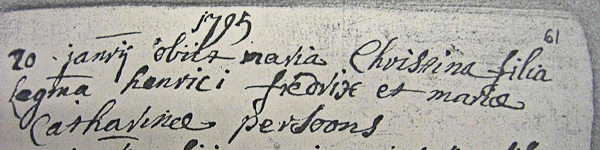 1795
61
20 janrÿ obiit maria Christina filia
Legma henrici fredrix et mariæ
Catharinæ persoons